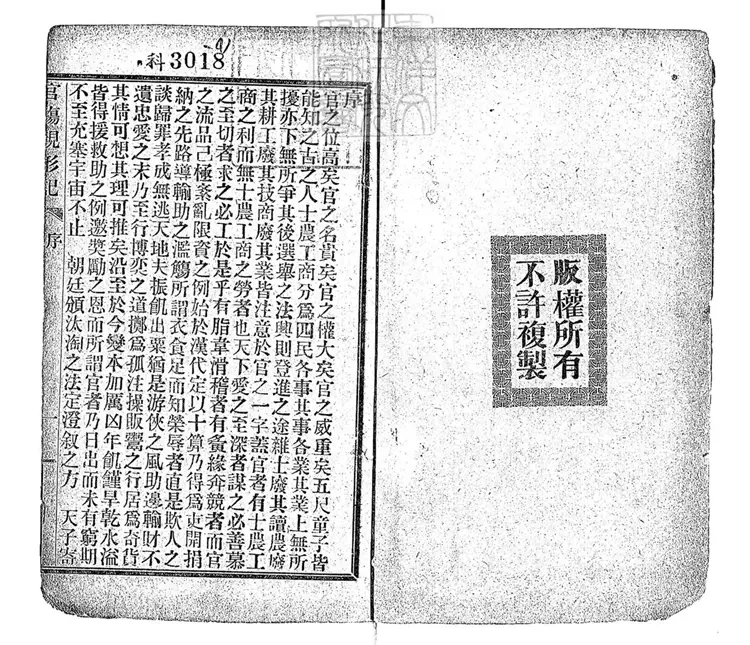 版權所有
不許複製
科3018
序
官之位高矣官之名貴矣官之權大矣官之威重矣五尺童子皆
能知之古之人士農工商分爲四民各事其事各業其業上無所
擾亦下無所爭其後選舉之法興則登進之途雜士廢其讀農廢
其耕工廢其技商廢其業皆注意於官之一字蓋官者有士農工
商之利而無士農工商之勞者也天下愛之至深者謀之必善慕
之至切者求之必工於是乎有脂韋滑稽者有夤緣奔競者而官
之流品已極紊亂限資之例始於漢代定以十算乃得爲吏開捐
納之先路導輸助之濫觴所謂衣食足而知榮辱者直是欺人之
談歸罪孝成無逃天地夫振飢出粟猶是游俠之風助邊輸財不
遺忠愛之末乃至行博奕之道擲爲孤注操販鬻之行居爲奇貨
其情可想其理可推矣沿至於今變本加厲凶年飢饉旱乾水溢
皆得援救助之例邀奬勵之恩而所謂官者乃日出而未有窮期
不至充塞宇宙不止 朝廷頒汰淘之法定澄敘之方 天子寄
官場現形記 序 一